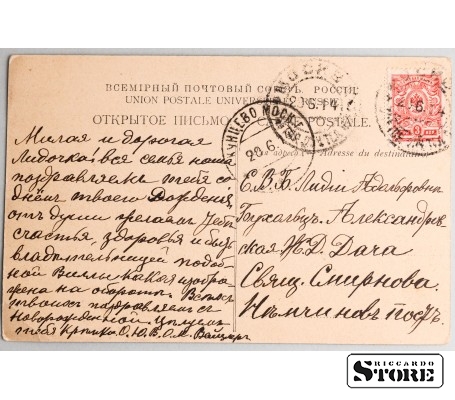 ВСЕМІРНЫЙ ПОЧТОВЫЙ СОЮЗЪ. РОССІЯ
UNION POSTALE UNIVERSELLE. RUSSIE
ОТКРЫТОЕ ПИСЬМО POSTALE.
adresse et Adresse du destinataire
КУНЦЕВО МОСК
20.6
МОСКВА
6.14
Милая и дорогая
Лидочка! вся семья наша
поздравляемъ тебя со
днёмъ твоего Рожденія,
отъ души желаемъ Тебѣ
счастья, здоровья и быть
владѣтельницей подоб-
ной Виллы какая изобра-
жена на оборотѣ.
поздравляемъ съ
новорожденной. Цѣлуемъ
тебя крѣпко. О. Ю. В. О. и
Е.В.Б. Лидіи Адольфовнѣ
Бухгольцъ. Александров-
ская Ж.Д. Дача
Свящ. Смирнова.
Нѣмчиновъ постъ.
RICCARDO
STORE